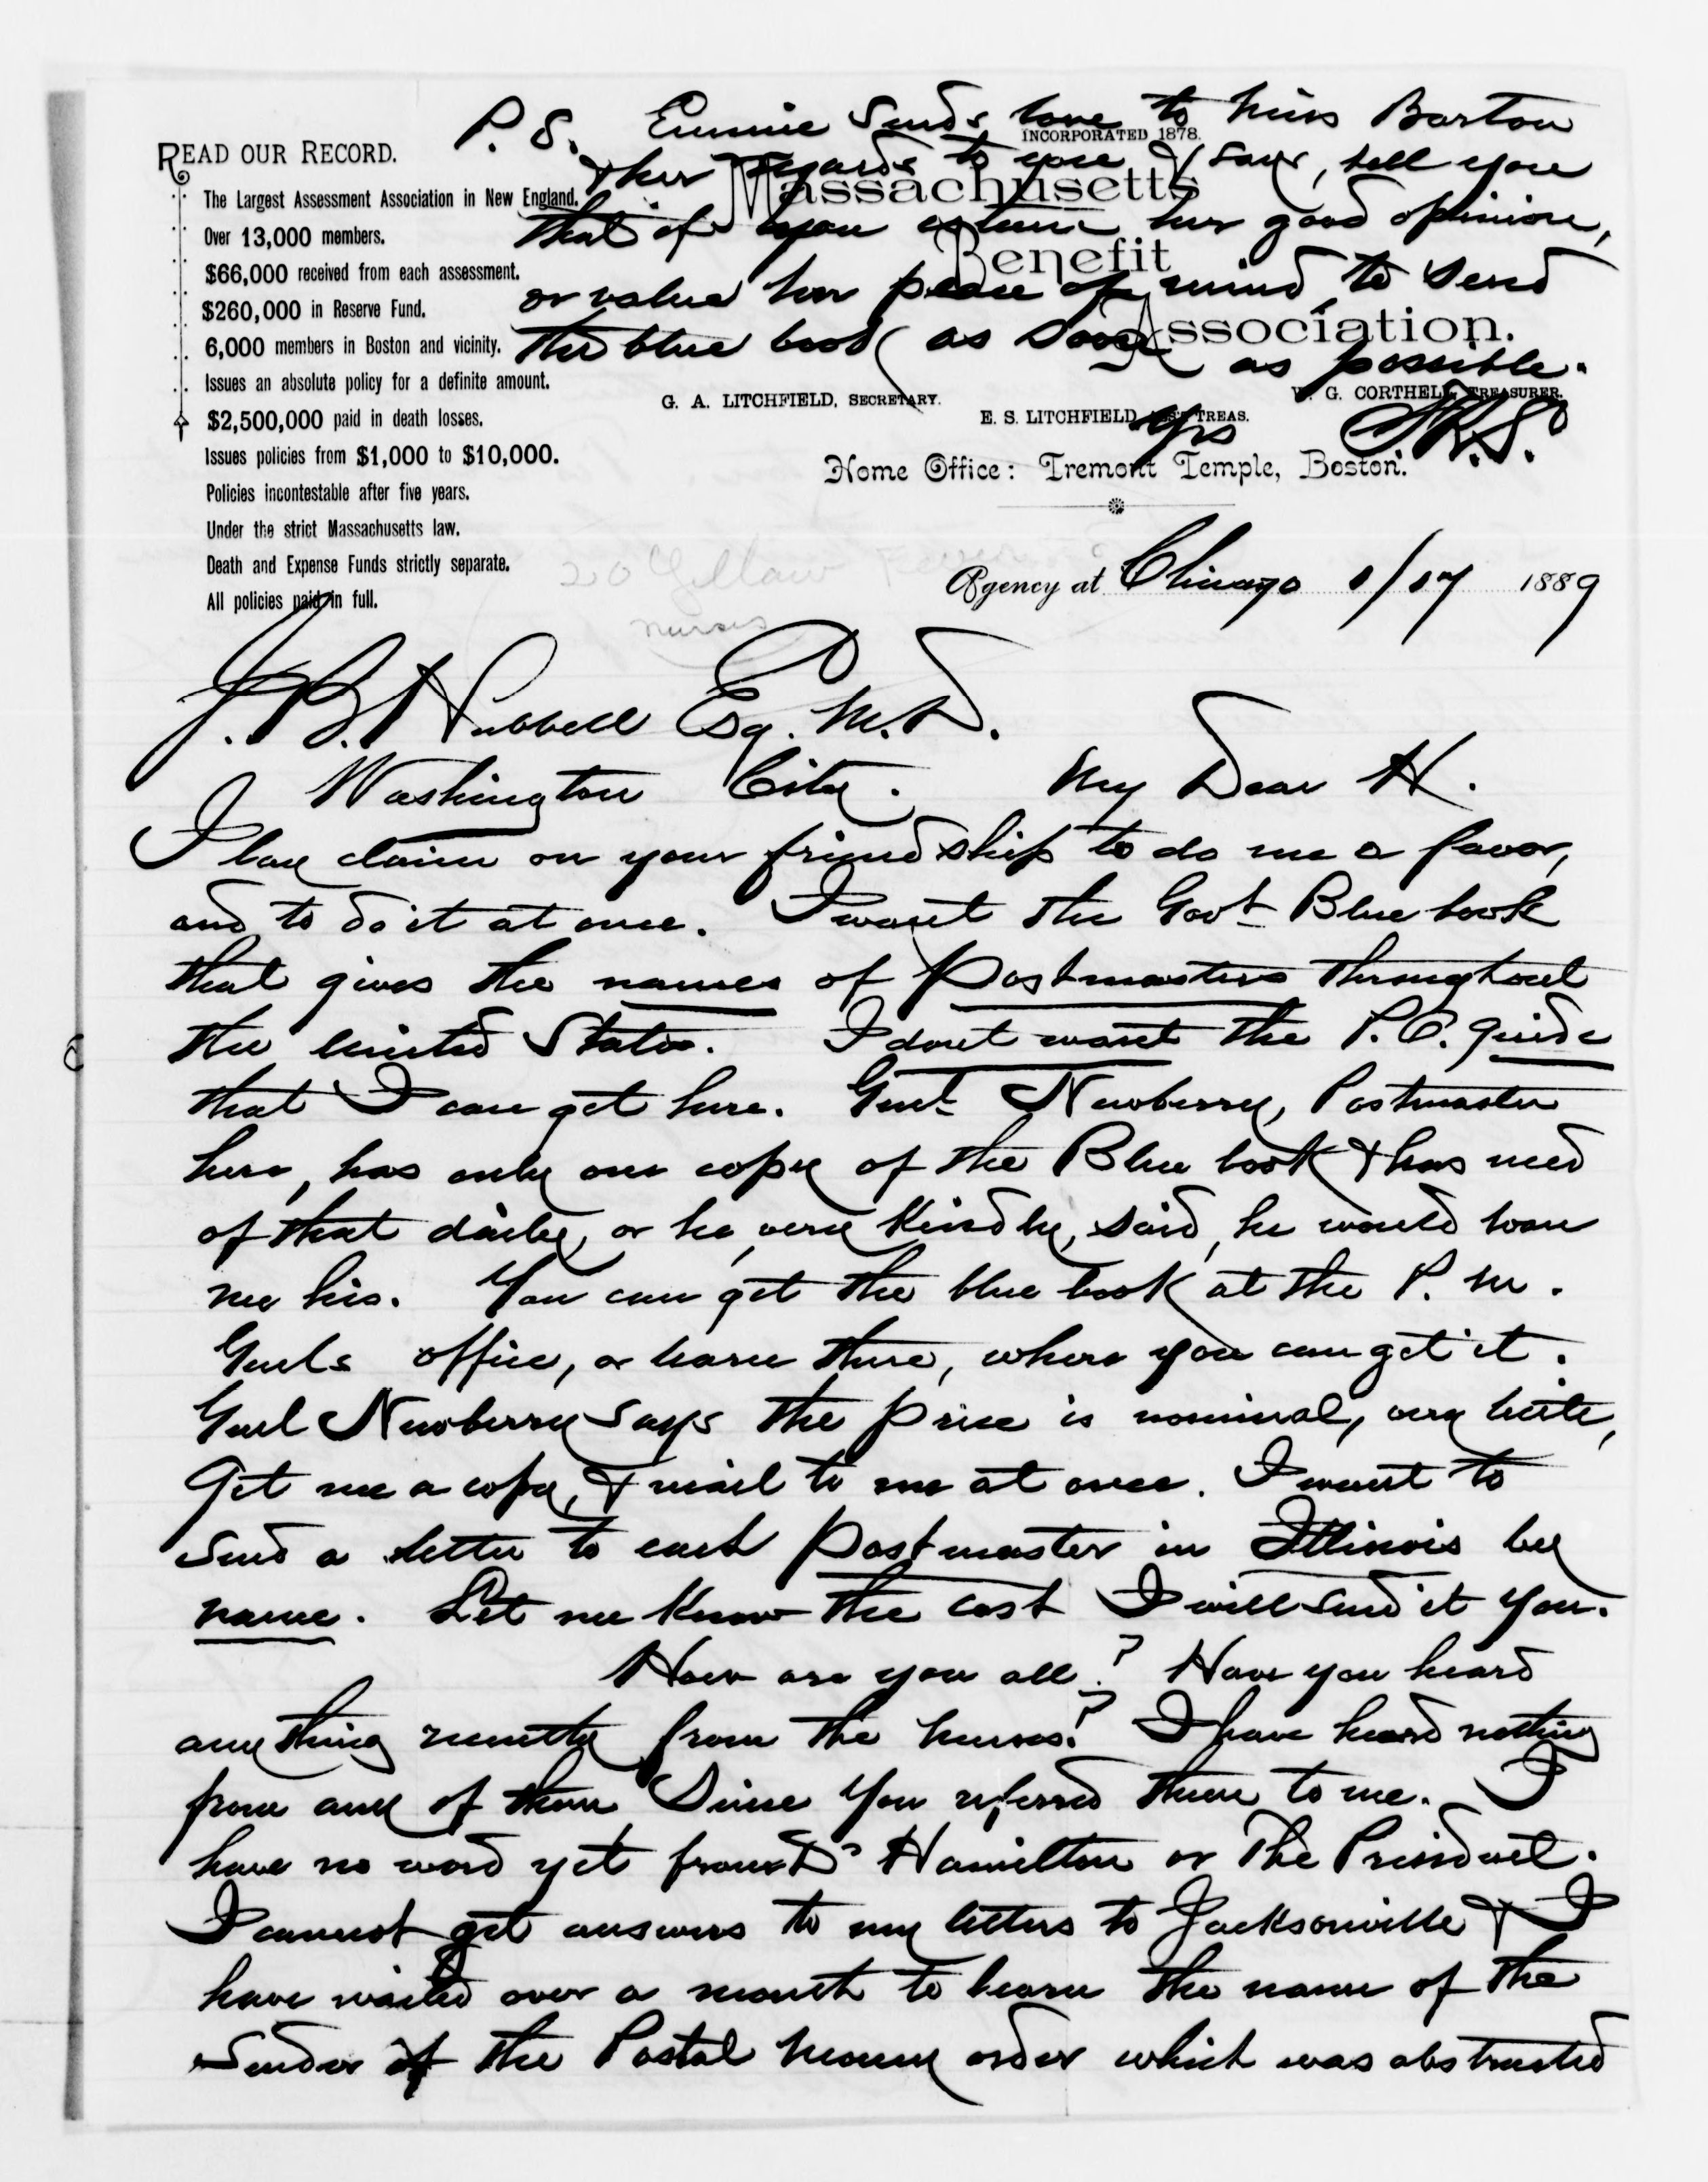 P.S. Eunnie sends love to Miss Barton
& her regards to you & says, tell you
that if you esteem her good opinion,
or value her peace of mind, to send
the blue book as soon
as possible.
Yrs
READ OUR RECORD.
The Largest Assessment Association in New England.
Over 13,000 members.
$66,000 received from each assessment.
$260,000 in Reserve Fund.
6,000 members in Boston and vicinity.
Issues an absolute policy for a definite amount.
$2,500,000 paid in death losses.
Issues policies from $1,000 to $10,000.
Policies incontestable after five years.
Under the strict Massachusetts law.
Death and Expense Funds strictly separate.
All policies paid in full.
INCORPORATED 1878.
Massachusetts
Benefit
Association.
G. A. LITCHFIELD, SECRETARY.
G. CORTHELL, TREASURER.
E. S. LITCHFIELD, TREAS.
Home Office: Tremont Temple, Boston.
20 Yellow Fever
nurses
Agency at Chicago 1/17 1889
J. B. Hubbell Esq. M.D.
Washington City. My Dear H.
I lay claim on your friendship to do me a favor,
and to do it at once. I want the Govt Blue book
that gives the names of Postmasters throughout
the United States. I dont want the P.O. guide
that I can get here. Genl Newberry, Postmaster
here, has only one copy of the Blue book & has need
of that daily, or he, very kindly, said, he would loan
me his. You can get the blue book at the P. M.
Genls office, or learn there, where you can get it.
Genl Newberry says the price is nominal, very little,
Get me a copy, & mail to me at once. I want to
send a letter to each Postmaster in Illinois by
name. Let me know the cost I will send it you.
How are you all? Have you heard
anything recently from the nurses? I have heard nothing
from any of them since you referred them to me. I
have no word yet from Dr Hamilton or The President.
I cannot get answers to my letters to Jacksonville & I
have waited over a month to learn the name of the
sender of the Postal money order which was abstracted